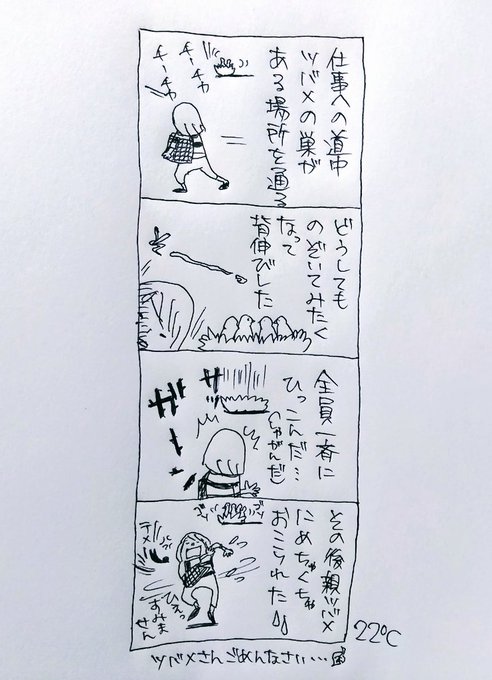 仕事への道中
ツバメの巣が
ある場所を通る
チーチャ
チーチャ
どうしても
のぞいてみたく
なって
背伸びした
全員一斉に
ひっこんだ…
(しゃがんだ)
サ
ガーン
その後親ツバメ
にめちゃくちゃ
おこられた
テメ
ひえっ
すみま
せん
22℃
ツバメさんごめんなさい…